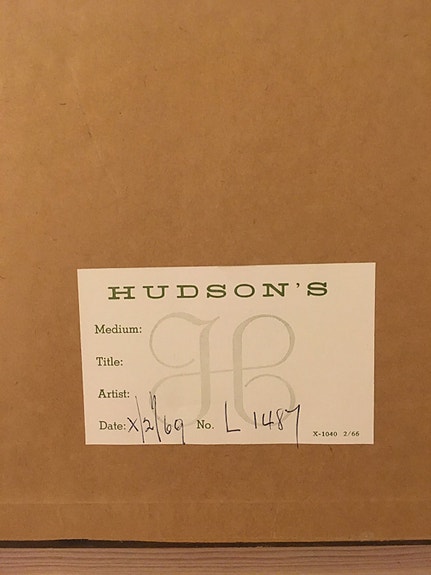 HUDSON'S
Medium:
Title:
Artist:
Date: X/2/69 No. L 1487
X-1040 2/66